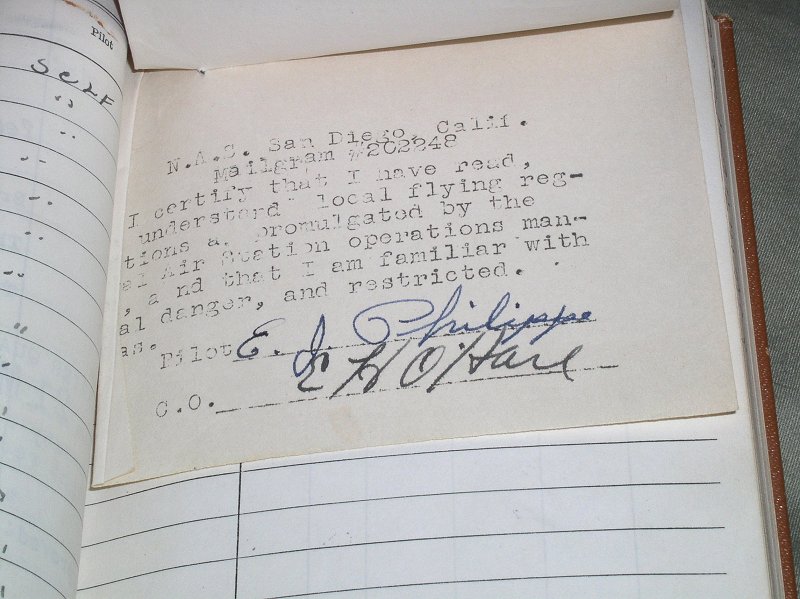 Pilot
SELF
"
"
"
"
"
"
"
N.A.S. San Diego, Calif.
Mailgram #202248
I certify that I have read,
understand local flying reg-
tions a. promulgated by the
al Air Station operations man-
, a nd that I am familiar with
al danger, and restricted.
as.
Pilot E. J. Philippe
C.O. E H O'Hare